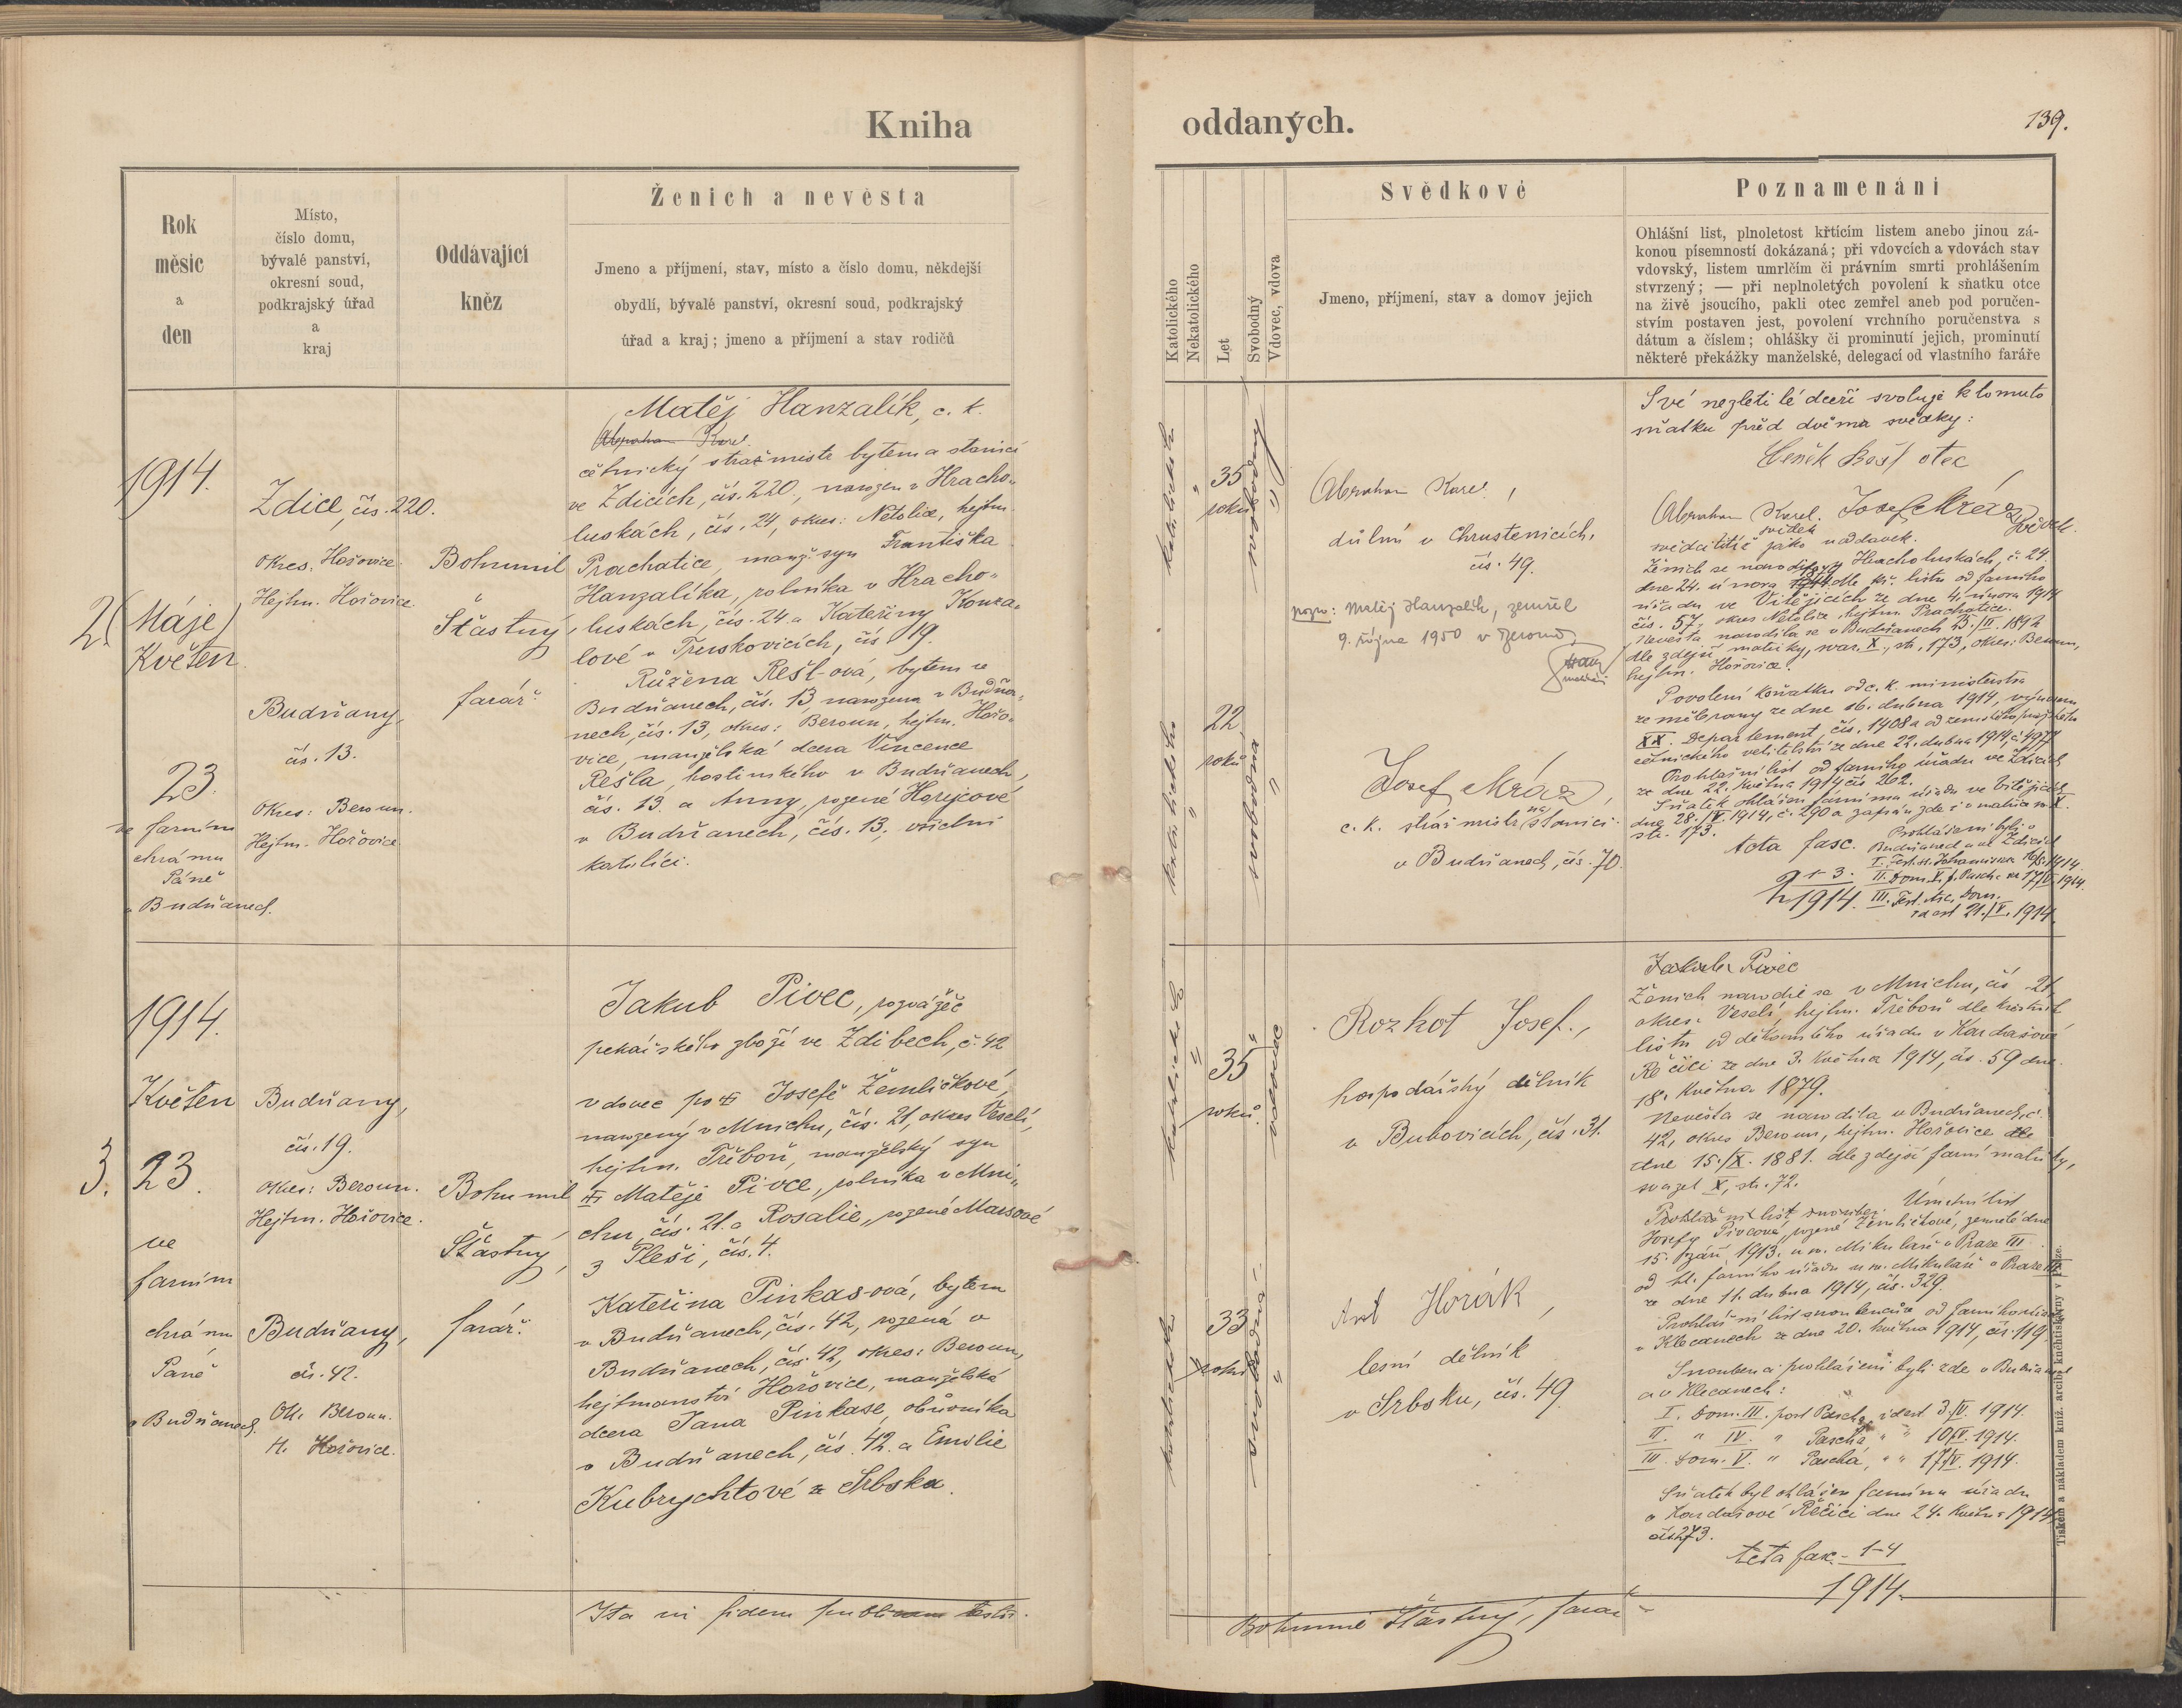 Kniha
oddaných.
139.
Rok
měsíc
a
den
Místo,
číslo domu,
bývalé panství,
okresní soud,
podkrajský úřad
a
kraj
Oddávající
kněz
Ženich a nevěsta
Jmeno a příjmení, stav, místo a číslo domu, někdejší
obydlí, bývalé panství, okresní soud, podkrajský
úřad a kraj; jmeno a příjmení a stav rodičů
Katolického
Nekatolického
Let
Svobodný
Vdovec, vdova
Svědkové
Jmeno, příjmení, stav a domov jejich
Poznamenání
Ohlášní list, plnoletost křtícím listem anebo jinou zá-
konou písemností dokázaná; při vdovcích a vdovách stav
vdovský, listem umrlčím či právním smrti prohlášením
stvrzený; — při neplnoletých povolení k sňatku otce
na živě jsoucího, pakli otec zemřel aneb pod poručen-
stvím postaven jest, povolení vrchního poručenstva s
dátum a číslem; ohlášky či prominutí jejich, prominutí
některé překážky manželské, delegací od vlastního faráře
2.
1914.
Máje
Květen
23.
ve farním
chrámu
Páně
v Budňanech.
Zdice, čís. 220.
Okres: Hořovice.
Hejtm. Hořovice.
Budňany,
čís. 13.
Okres: Beroun.
Hejtm. Hořovice
Bohumil
Šťastný,
farář.
Matěj Hanzalík, c. k.
Abraham Karel
četnický stražmistr bytem a stanicí
ve Zdicích, čís. 220., narozen v Hracho„
luskách, čís. 24, okres: Netolice, hejtm.
Prachatice, manž. syn Františka
Hanzalíka, rolníka v Hracho„
luskách, čís. 24. a Kateřiny Kouba„
lové v Truskovicích, čís. 19.
Růžena Rešl-ová, bytem v
Budňanech, čís. 13, narozena v Budňa„
nech, čís. 13, okres: Beroun, hejtm. Hořo„
vice, manželská dcera Vincence
Rešla, hostinského v Budňanech,
čís. 13. a Anny, rozené
v Budňanech, čís. 13, všichni
katolíci.
katolického
"
35
roků
svobodný
"
Abraham Karel,
důlní v Chrustenicích,
čís. 49.
pozn: Matěj Hanzalík, zemřel
9. října 1950 v Berouně.
katolického
"
22
roků
svobodná
"
Josef Mráz,
c. k. strážmistr na stanici
v Budňanech, čís. 70.
Své nezletilé dceři svoluje k tomuto
sňatku před dvěma svědky:
Čeněk Rešl otec
Abraham Karel. Josef Mráz
svědek svědek.
jako oddavek.
Ženich se narodil v Hracholuskách, č. 24.
dne 24. února 1879 dle kř. listu od farního
úřadu ve Vitějicích ze dne 4. února 1914
čís. 57, okres Netolice, hejtm. Prachatice.
Nevěsta narodila se v Budňanech 23./III. 1892
dle zdejší matriky, svaz. X., str. 173, okres: Beroun,
hejtm. Hořovice.
Povolení k sňatku od c. k. ministerstva
zeměbrany ze dne 16. dubna 1914, výnosem
XX. Departement, čís. 1408 a od zemského
četnického velitelství ze dne 22. dubna 1914 č. 4977
Prohlášní list od farního úřadu ve Zdicích
ze dne 22. května 1914, čís. 262.
Sňatek ohlášen farnímu úřadu ve Vitějicích
dne 28./V. 1914, č. 290 a zapsán zde i v matrice sv. X.
str. 173.
Prohlášeni byli v
Budňanech a ve Zdicích
Acta fasc. 1-3.
1914.
II. Dom. V. p. Pasch. 17/V. 1914.
III. Fest. Asc. Dom.
id est 21./V. 1914.
3.
1914.
Květen
23.
ve
farním
chrámu
Páně
v Budňanech.
Budňany,
čís. 19.
Okres: Beroun.
Hejtm. Hořovice.
Budňany,
čís. 42.
Ok. Beroun.
H. Hořovice.
Bohumil
Šťastný,
farář.
Jakub Pivec, rozvážeč
pekařského zboží ve Zdibech, č. 42
vdovec po Josefě Žemličkové,
narozený v Mnichu, čís. 21, okres Veselí,
hejtm. Třeboň, manželský syn
Matěje Pivce, rolníka v Mni„
chu, čís. 21. a Rosalie, rozené Marsové
z Pleší, čís. 4.
Kateřina Pinkas-ová, bytem
v Budňanech, čís. 42, rozená v
Budňanech, čís. 42, okres: Beroun,
hejtmanství Hořovice, manželská
dcera Jana Pinkase, obuvníka
v Budňanech, čís. 42. a Emilie
Kubrychtové ze Srbska.
katolického
"
35
roků.
vdovec
"
Rozhot Josef.,
hospodářský dělník
v Bubovicích, čís. 31.
katolického
33
roků
svobodná
"
Ant Horák,
lesní dělník
v Srbsku, čís. 49.
Jakub Pivec
Ženich narodil se v Mnichu, čís 21,
okres Veselí, hejtm. Třeboň dle křestního
listu od děkanského úřadu v Kardašově
Řečici ze dne 3. května 1914, čís. 59 dne
18. května 1879.
Nevěsta se narodila v Budňanech, č.
42, okres Beroun, hejtm. Hořovice
dne 15./X. 1881. dle zdejší farní matriky,
svazek X, str. 72.
Úmrtní list
Josefy Pivcové, rozené Žemličkové, zemřelé dne
15. září 1913. u sv. Mikuláše v Praze III
od farního úřadu u sv. Mikuláše v Praze III
ze dne 11. dubna 1914, čís. 329.
Prohlášní list snoubencův od farního úřadu
v Klecanech ze dne 20. května 1914, čís. 119.
Snoubenci prohlášeni byli zde v Budňanech
a v Klecanech:
I. Dom. III. post Pascha, id est 3./V. 1914.
II. " IV. " Pascha " " 10/V. 1914.
III. Dom. V. " Pascha, " " 17/V. 1914.
Sňatek byl ohlášen farnímu úřadu
v Kardašově Řečici dne 24. května 1914,
čís. 273.
Acta fasc. 1-4
1914.
Ita in fidem publicam testor.
Bohumil Šťastný, farář
Tiskem a nákladem kníž. arcib. knihtiskárny v Praze.